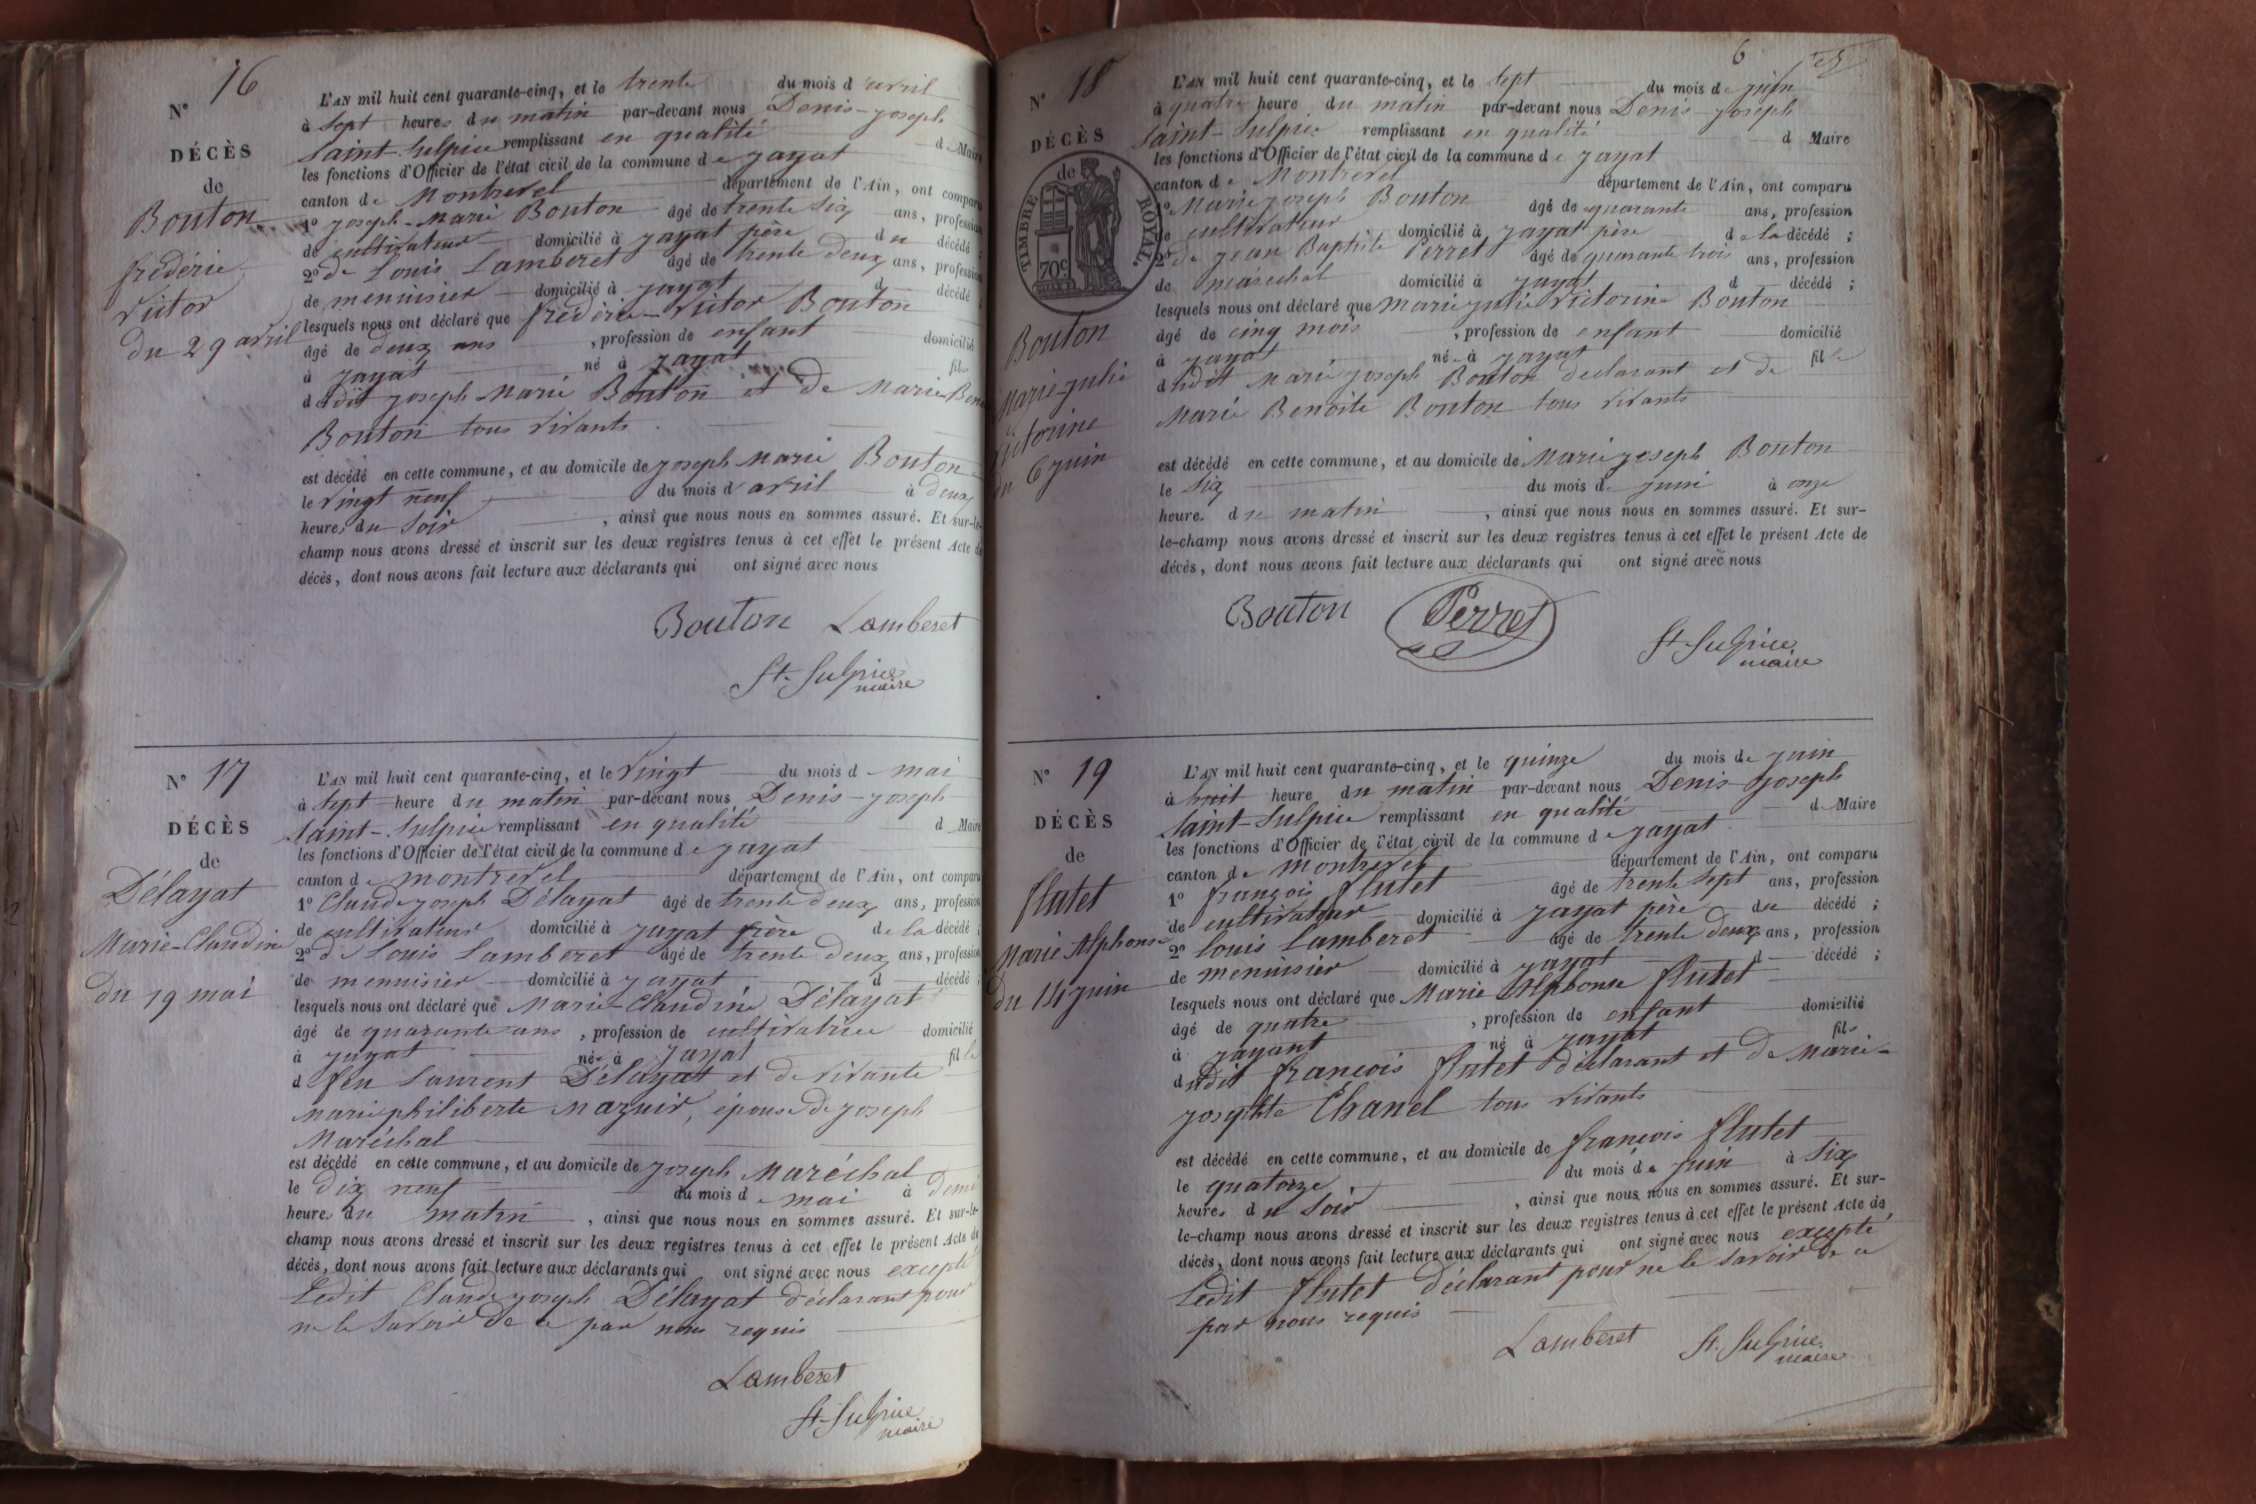 N° 16
DÉCÈS
de
Bouton
frédéric
Victor
du 29 avril
L'AN mil huit cent quarante-cinq, et le trente du mois d'avril
à Sept heures du matin par-devant nous Denis-joseph
Saint-Sulpice remplissant en qualité de Maire
les fonctions d'Officier de l'état civil de la commune de jayat
canton de Montrevel département de l'Ain, ont comparu
1° joseph-Marie Bouton âgé de trente Six ans, profession
de cultivateur domicilié à jayat père du décédé
2° de Louis Lamberet âgé de trente deux ans, profession
de menuisier domicilié à jayat d décédé ;
lesquels nous ont déclaré que frédéric-Victor Bouton
âgé de deux ans, profession de enfant domicilié
à jayat né à jayat fils
dudit joseph Marie Bouton et de Marie
Bouton tous vivants
est décédé en cette commune, et au domicile de joseph Marie Bouton
le vingt neuf du mois d'avril à deux
heures du Soir, ainsi que nous nous en sommes assuré. Et sur-le-
champ nous avons dressé et inscrit sur les deux registres tenus à cet effet le présent Acte de
décès, dont nous avons fait lecture aux déclarants qui ont signé avec nous
Bouton Lamberet
St-Sulpice
maire
N° 17
DÉCÈS
de
Délayat
Marie-Claudine
du 19 mai
L'AN mil huit cent quarante-cinq, et le vingt du mois d mai
à Sept heure du matin par-devant nous Denis-joseph
Saint-Sulpice remplissant en qualité d Maire
les fonctions d'Officier de l'état civil de la commune de jayat
canton de montrevel département de l'Ain, ont comparu
1° Claude joseph Délayat âgé de trente deux ans, profession
de cultivateur domicilié à jayat frère de la décédé ;
2° de Louis Lamberet âgé de trente deux ans, profession
de menuisier domicilié à jayat d décédé ;
lesquels nous ont déclaré que Marie-Claudine Délayat
âgé de quarante ans, profession de cultivatrice domicilié
à jayat née à jayat fille
d feu Laurent Délayat et de vivante
Marie philiberte Mazuir, épouse de joseph
Maréchal
est décédé en cette commune, et au domicile de joseph Maréchal
le dix neuf du mois de mai à demi
heure du matin, ainsi que nous nous en sommes assuré. Et sur-le-
champ nous avons dressé et inscrit sur les deux registres tenus à cet effet le présent Acte de
décès, dont nous avons fait lecture aux déclarants qui ont signé avec nous excepté
Ledit Claude joseph Délayat déclarant pour
ne le Savoir de ce par nous requis
Lamberet
St-Sulpice
maire
6
N° 18
DÉCÈS
de
TIMBRE ROYAL
70c
Bouton
Marie-julie
Victorine
6 juin
L'AN mil huit cent quarante-cinq, et le Sept du mois de juin
à quatre heure du matin par-devant nous Denis-joseph
Saint-Sulpice remplissant en qualité d Maire
les fonctions d'Officier de l'état civil de la commune de jayat
canton de Montrevel département de l'Ain, ont comparu
1° Marie joseph Bouton âgé de quarante ans, profession
de cultivateur domicilié à jayat père de la décédé ;
2° de jean Baptiste Perret âgé de quarante trois ans, profession
de maréchal domicilié à jayat d décédé ;
lesquels nous ont déclaré que Marie julie Victorine Bouton
âgé de cinq mois, profession de enfant domicilié
à jayat née à jayat fille
dudit Marie joseph Bouton déclarant et de
Marie Benoîte Bouton tous vivants
est décédé en cette commune, et au domicile de Marie joseph Bouton
le Six du mois de juin à onze
heure du matin, ainsi que nous nous en sommes assuré. Et sur-
le-champ nous avons dressé et inscrit sur les deux registres tenus à cet effet le présent Acte de
décès, dont nous avons fait lecture aux déclarants qui ont signé avec nous
Bouton Perret
St-Sulpice
maire
N° 19
DÉCÈS
de
flutet
Marie Alphonse
du 14 juin
L'AN mil huit cent quarante-cinq, et le quinze du mois de juin
à huit heure du matin par-devant nous Denis-joseph
Saint-Sulpice remplissant en qualité d Maire
les fonctions d'Officier de l'état civil de la commune de jayat
canton de montrevel département de l'Ain, ont comparu
1° françois flutet âgé de trente Sept ans, profession
de cultivateur domicilié à jayat père du décédé ;
2° louis Lamberet âgé de trente deux ans, profession
de menuisier domicilié à jayat d décédé ;
lesquels nous ont déclaré que Marie Alphonse flutet
âgé de quatre, profession de enfant domicilié
à jayant né à jayat fils
dudit françois flutet déclarant et de Marie-
josephte Chanel tous vivants
est décédé en cette commune, et au domicile de françois flutet
le quatorze du mois de juin à Six
heures du Soir, ainsi que nous nous en sommes assuré. Et sur-
le-champ nous avons dressé et inscrit sur les deux registres tenus à cet effet le présent Acte de
décès, dont nous avons fait lecture aux déclarants qui ont signé avec nous excepté
Ledit flutet déclarant pour ne le Savoir de ce
par nous requis
Lamberet St. Sulpice
maire